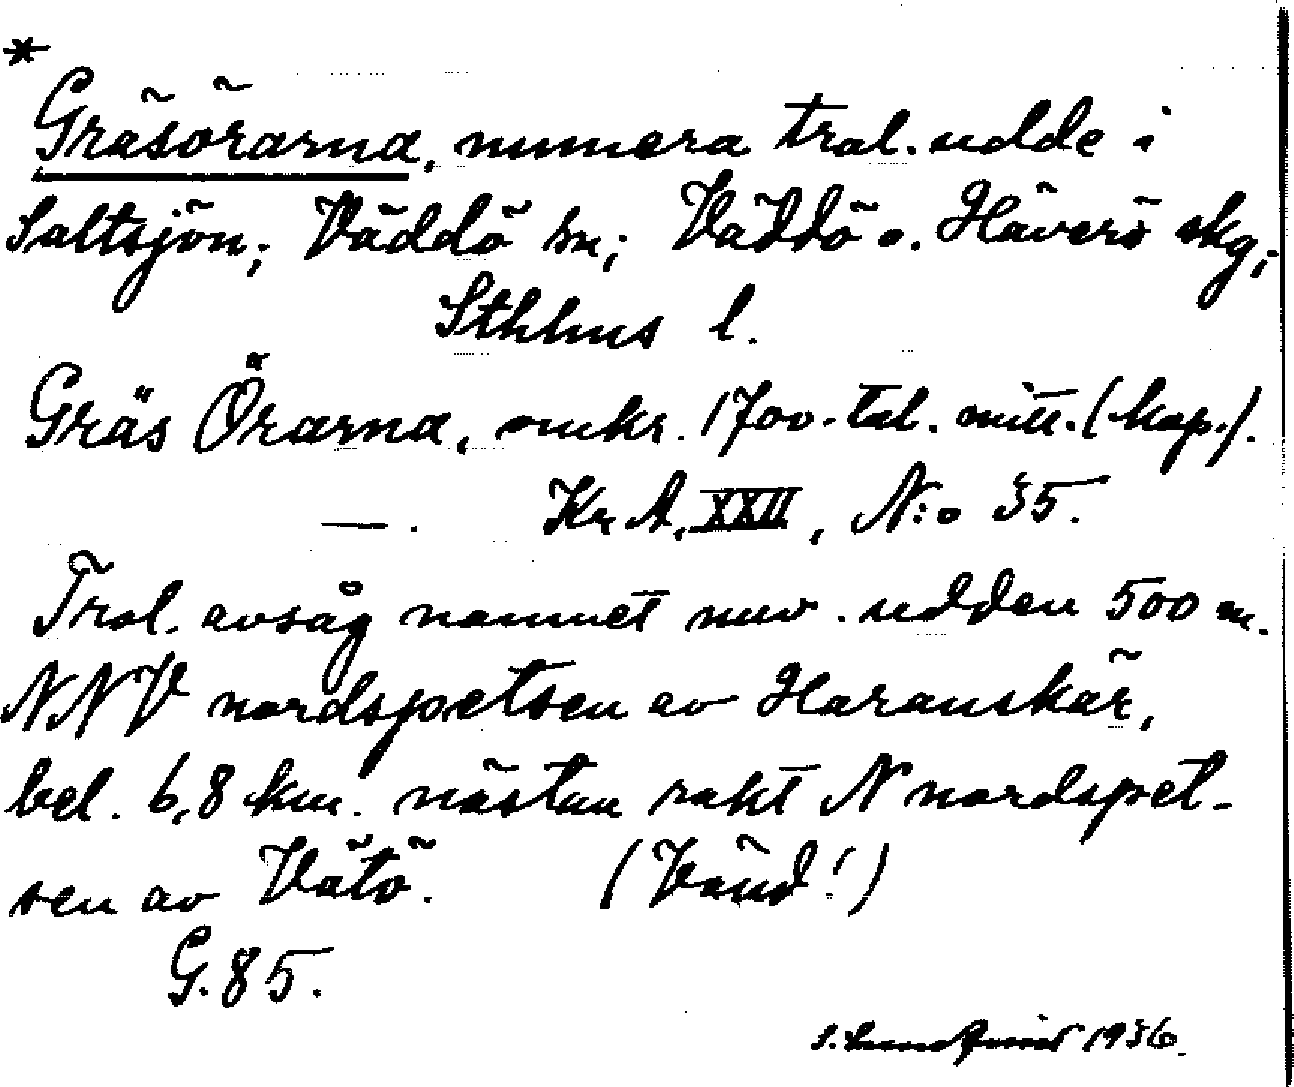 *
Gräsörarna, numera trol. udde i
Saltsjön; Väddö sn; Väddö o. Häverö skg;
Sthlms l.
Gräs Örarna, omkr. 1700-tal. mitt. (kop.).
— . Kr A, XXII, N:o 35.
Trol. avsåg namnet nuv. udden 500 m.
NNV nordspetsen av Haranskär,
bel. 6,8 km. nästan rakt N nordspet-
sen av Vätö. (Vänd!)
G. 85.
S. Lundquist 1936.